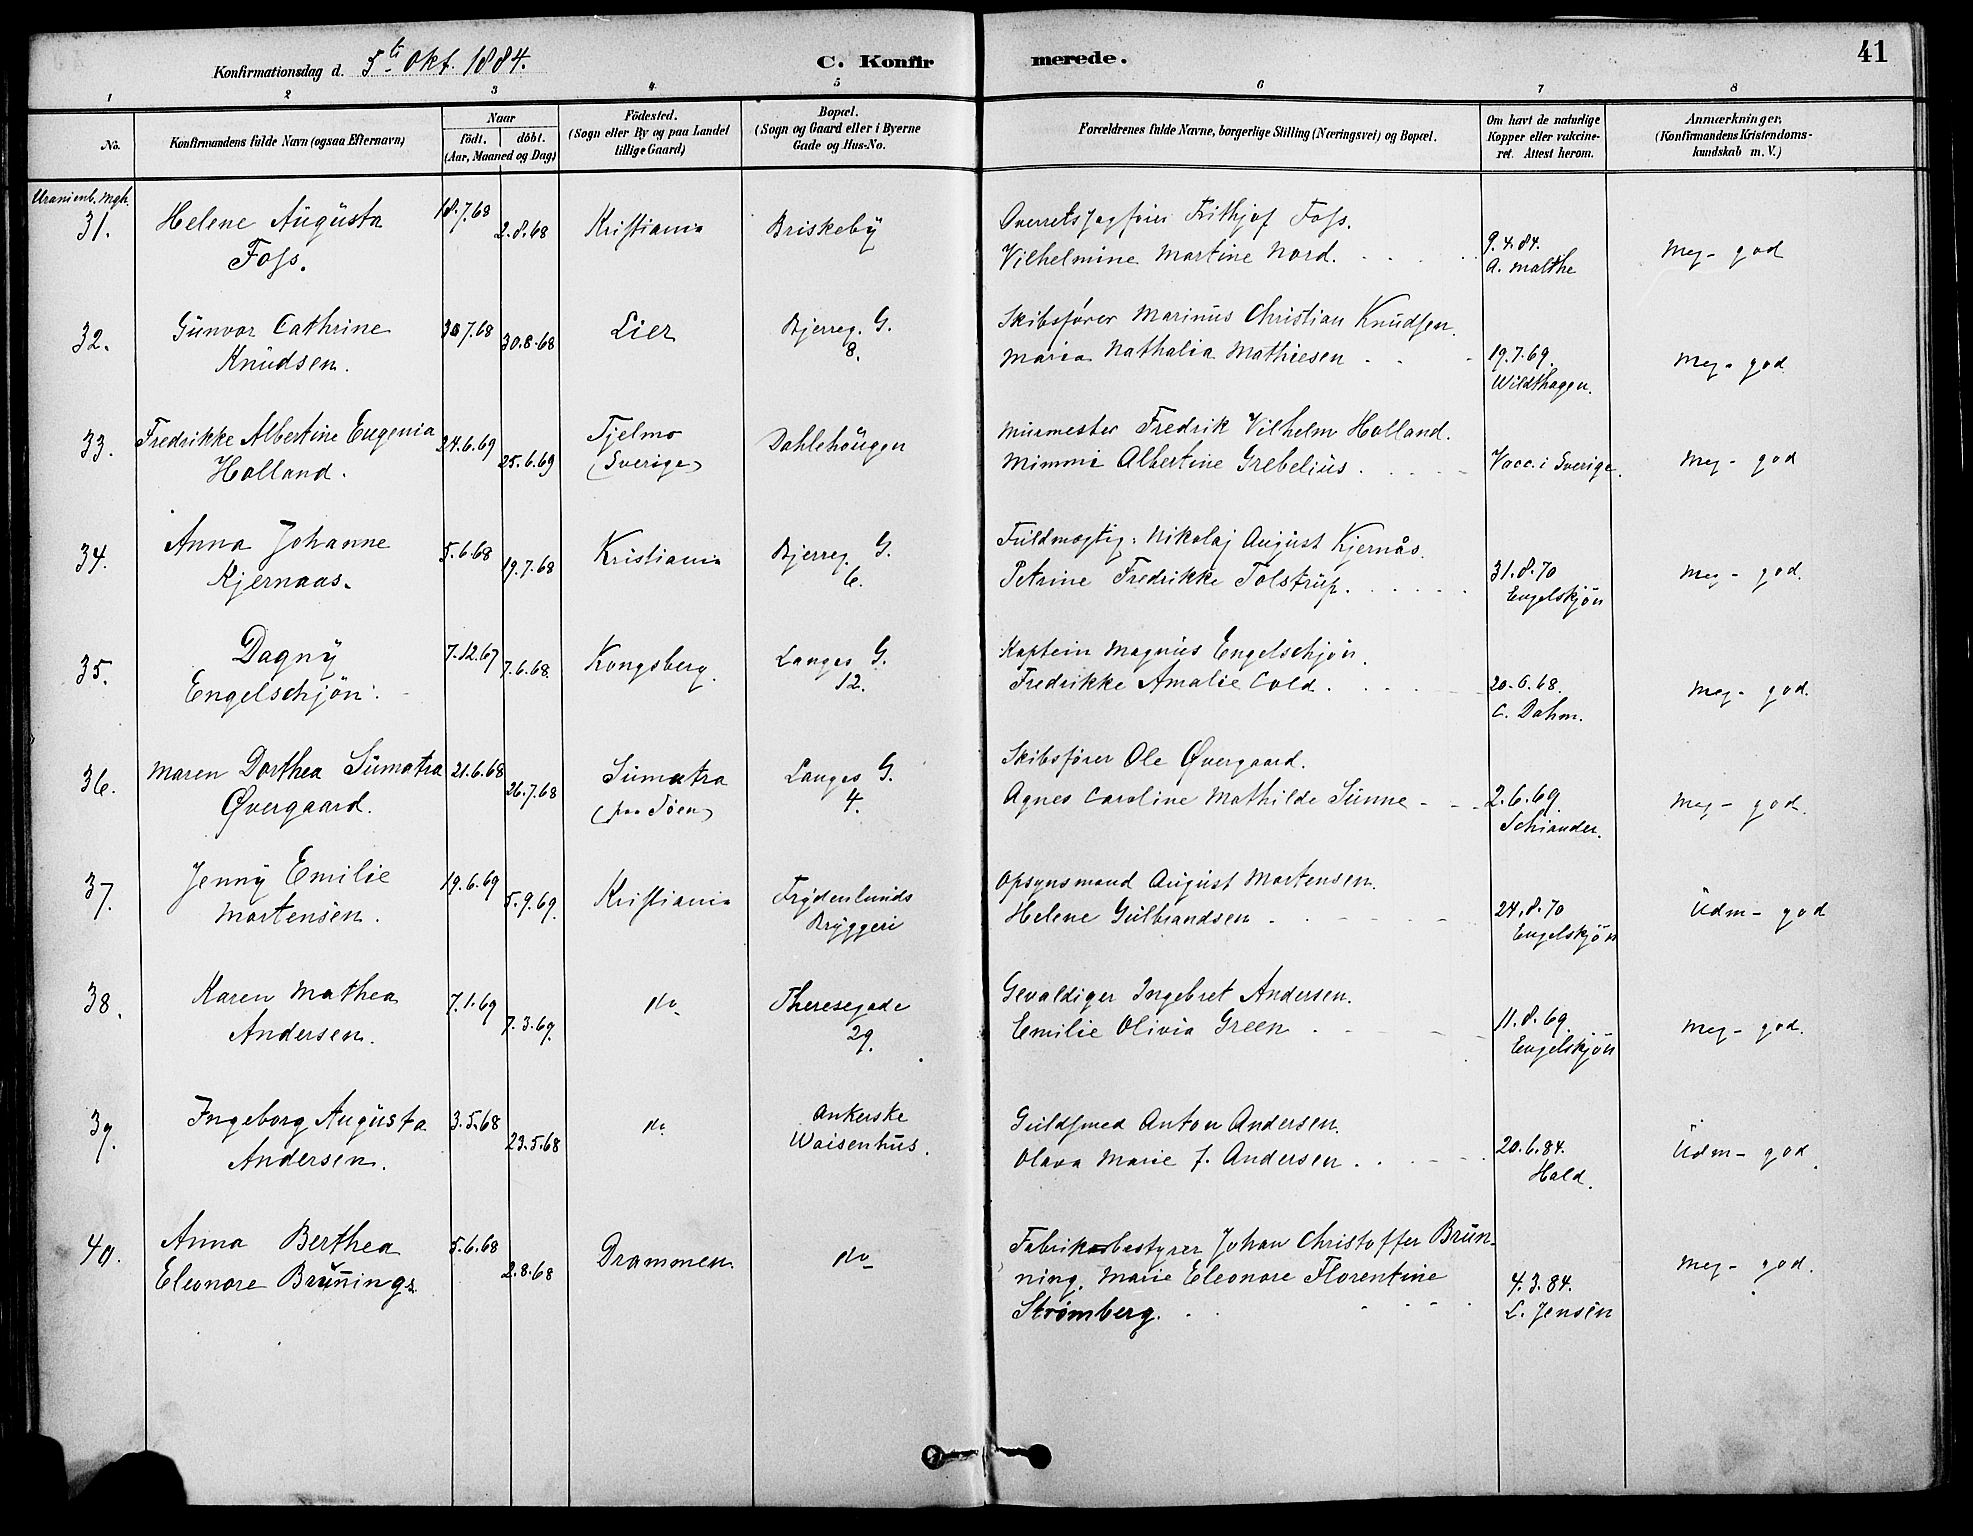 41
Konfirmationsdag d. 5te Okt. 1884. C. Konfirmerede.
1 2 3 4 5 6 7 8
No. Konfirmandens fulde Navn (ogsaa Efternavn) Naar født. døbt. (Aar, Maaned og Dag) Födested. (Sogn eller By og paa Landet tillige Gaard) Bopæl. (Sogn og Gaard eller i Byerne Gade og Hus-No. Forældrenes fulde Navne, borgerlige Stilling (Næringsvei) og Bopæl. Om havt de naturlige Kopper eller vakcineret. Attest herom. Anmærkninger. (Konfirmandens Kristendomskundskab m. V.)
Uranienb. Mgh.
31. Helene Augusta 18.7.68 2.8.68 Kristiania Briskeby Overretssagfører Frithjof Foss. 9.4.84. Meg- god
Foss. Vilhelmine Martine Nord. A. Malthe
32. Gunvor Cathrine 30.7.68 30.8.68 Lier Bjerreg. G. Skibsfører Marinus Christian Knudsen. 19.7.69. Meg- god
Knudsen. 8. Maria Nathalia Mathiesen Wildthagen.
33. Fredrikke Albertine Eugenia 24.6.69 25.6.69 Tjelmo Dahlehougen Murmester Fredrik Vilhelm Holland. Vacc. i Sverige. Meg- god
Holland. (Sverige) Mimmi Albertine Grebelius.
34. Anna Johanne 5.6.68 19.7.68 Kristiania Bjerreg. G. Fuldmægtig: Nikolaj August Kjernås. 31.8.70 Meg- god.
Kjernaas. 6. Petrine Fredrikke Tolstrup. Engelskjøn
35. Dagny 7.12.67 7.6.68. Kongsberg. Langes G. Kaptein Magnus Engelschjøn. 20.6.68. Meg- god.
Engelschjøn. 12. Fredrikke Amalie Cold. C. Dahm.
36. Maren Dorthea Sumatra 21.6.68 26.7.68 Sumatra Langes G. Skibsfører Ole Øvergaard. 2.6.69. Meg- god.
Øvergaard. (paa Søen) 4. Agnes Caroline Mathilde Sünne Schiander.
37. Jenny Emilie 19.6.69 5.9.69. Kristiania Frydenlunds Opsynsmand August Mortensen. 24.8.70 Udm- god
Mortensen. Bryggeri Helene Gulbrandsen Engelskjøn
38. Karen Mathea 7.1.69 7.3.69. do Theresegade Gevaldiger Ingebret Andersen. 11.8.69. Meg- god.
Andersen. 29. Emilie Olivia Green Engelskjøn
39. Ingeborg Augusta 3.5.68 23.5.68 do Ankerske Guldsmed Anton Andersen. 20.6.84. Udm- god.
Andersen. Waisenhus. Olava Marie f. Andersen. Hald.
40. Anna Berthea 5.6.68 2.8.68 Drammen do Fabrikbestyrer Johan Christoffer Brün- 4.3.84. Meg- god.
Eleonore Brünings ning. Marie Eleonore Florentine L. Jensen
Strømberg.